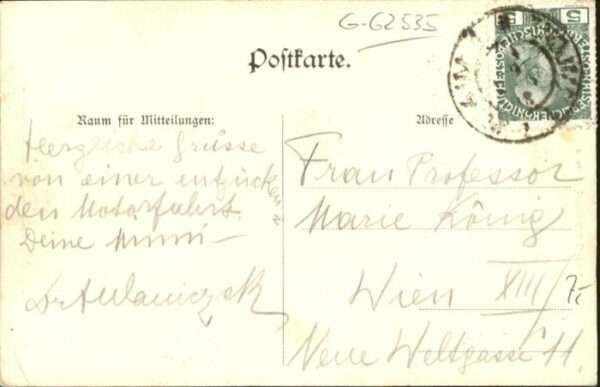 G-G2535
Postkarte.
Raum für Mitteilungen:
Herzliche Grüsse
von einer entzücken
den Motorfahrt
Deine Mimi
Adresse
Frau Professor
Marie König
Wien XIII/7.
Neue Weltgasse 11.
5 5